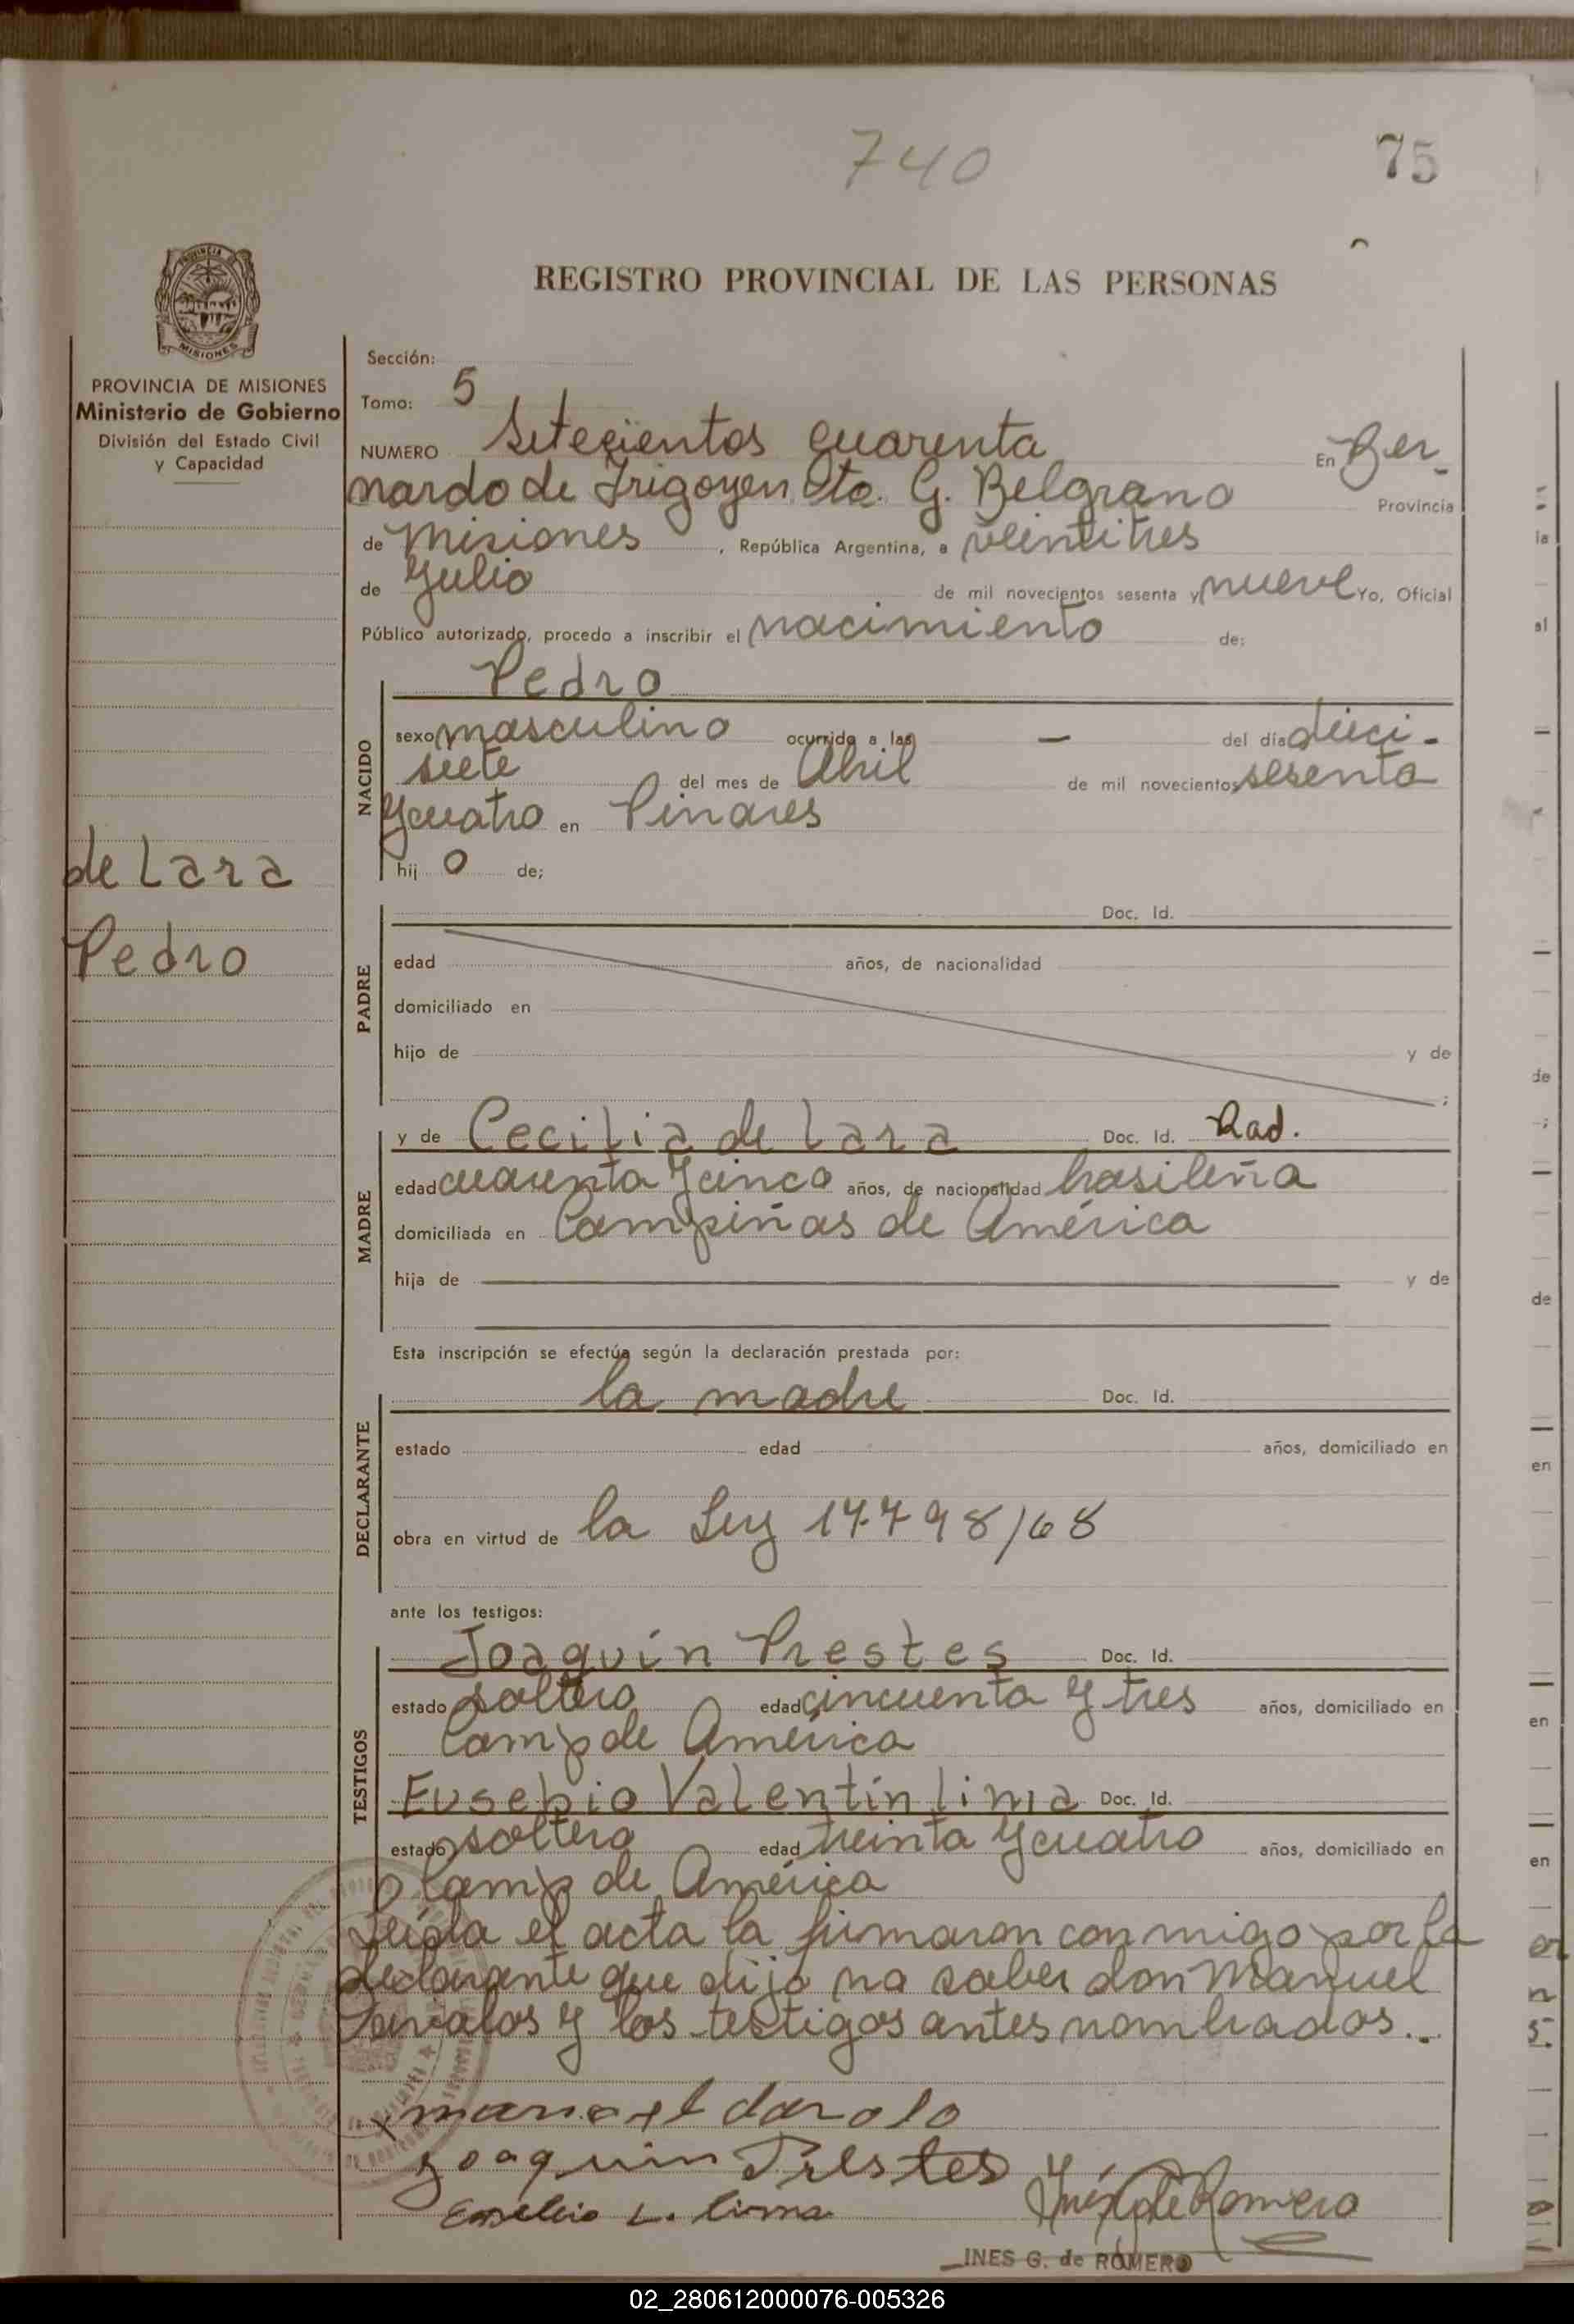 740
75
REGISTRO PROVINCIAL DE LAS PERSONAS
PROVINCIA DE
MISIONES
PROVINCIA DE MISIONES
Ministerio de Gobierno
División del Estado Civil
y Capacidad
de Lara
Pedro
Sección:
Tomo: 5
NUMERO Setecientos cuarenta En Ber-
nardo de Irigoyen Dto. G. Belgrano Provincia
de Misiones , República Argentina, a veintitres
de Julio de mil novecientos sesenta y nueve Yo, Oficial
Público autorizado, procedo a inscribir el nacimiento de:
NACIDO
Pedro
sexo masculino ocurrido a las — del día dieci-
siete del mes de Abril de mil novecientos sesenta
y cuatro en Pinares
hij o de;
PADRE
Doc. Id.
edad años, de nacionalidad
domiciliado en
hijo de y de
;
MADRE
y de Cecilia de Lara Doc. Id. Rad.
edad cuarenta y cinco años, de nacionalidad brasileña
domiciliada en Campiñas de América
hija de y de
Esta inscripción se efectúa según la declaración prestada por:
DECLARANTE
la madre Doc. Id.
estado edad años, domiciliado en
obra en virtud de la Ley 17.798/68
ante los testigos:
TESTIGOS
Joaquín Prestes Doc. Id.
estado soltero edad cincuenta y tres años, domiciliado en
Camp de América
Eusebio Valentín Lima Doc. Id.
estado soltero edad treinta y cuatro años, domiciliado en
Camp de América
Leída el acta la firmaron conmigo por la
declarante que dijo no saber don Manuel
y los testigos antes nombrados.-
Joaquin Prestes
L. lima
Inés G. de Romero
INES G. de ROMERO
02_280612000076-005326